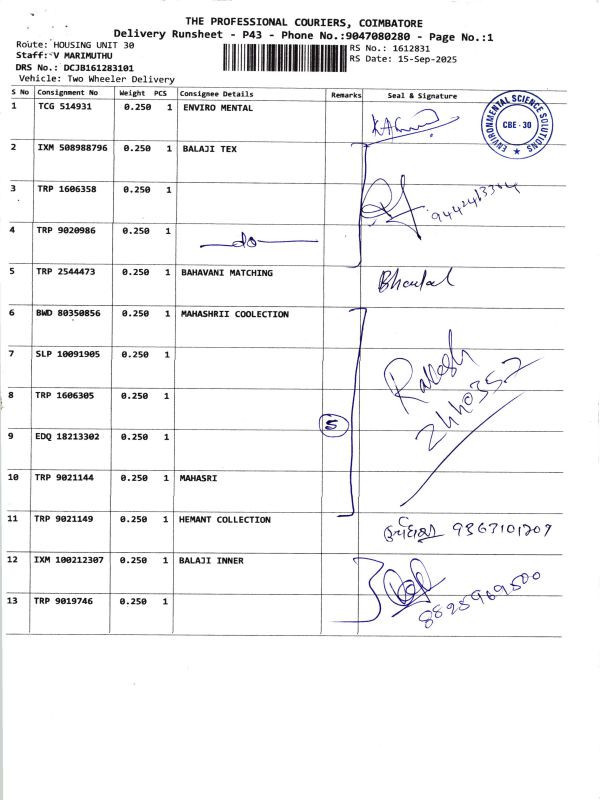 THE PROFESSIONAL COURIERS, COIMBATORE
Delivery Runsheet - P43 - Phone No.:9047080280 - Page No.:1
Route: HOUSING UNIT 30
Staff: V MARIMUTHU
RS No.: 1612831
DRS No.: DCJB161283101
RS Date: 15-Sep-2025
Vehicle: Two Wheeler Delivery
S No Consignment No Weight PCS Consignee Details Remarks Seal & Signature
1 TCG 514931 0.250 1 ENVIRO MENTAL
ENVIRONMENTAL SCIENCE SOLUTIONS
CBE - 30
2 IXM 508988796 0.250 1 BALAJI TEX
3 TRP 1606358 0.250 1
4 TRP 9020986 0.250 1 do
5 TRP 2544473 0.250 1 BAHAVANI MATCHING
6 BWD 80350856 0.250 1 MAHASHRII COOLECTION
7 SLP 10091905 0.250 1 Rakesh
8 TRP 1606305 0.250 1 2440352
5
9 EDQ 18213302 0.250 1
10 TRP 9021144 0.250 1 MAHASRI
11 TRP 9021149 0.250 1 HEMANT COLLECTION 9367101207
12 IXM 100212307 0.250 1 BALAJI INNER
13 TRP 9019746 0.250 1 8825969500